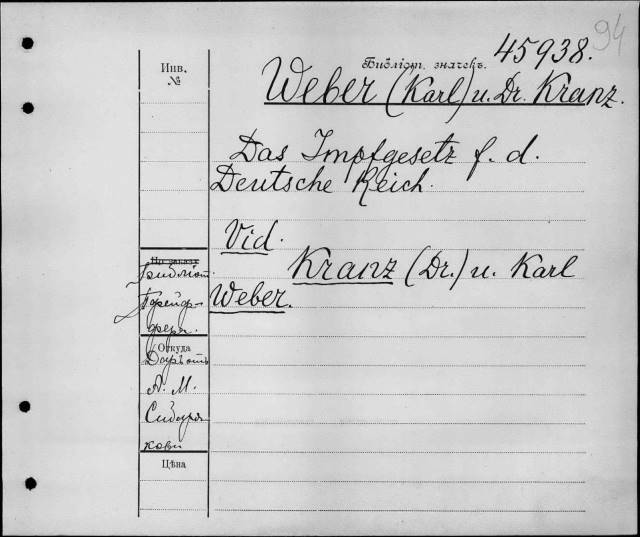 94
45938.
Инв.
№
Библіот. значекъ.
Weber (Karl) u. Dr. Kranz.
Das Impfgesetz f. d.
Deutsche Reich.
Vid.
Kranz (Dr.) u. Karl
Weber.
Библіот.
Грейф-
Откуда
Даръ отъ
А. М.
Сибиря-
кова
Цѣна